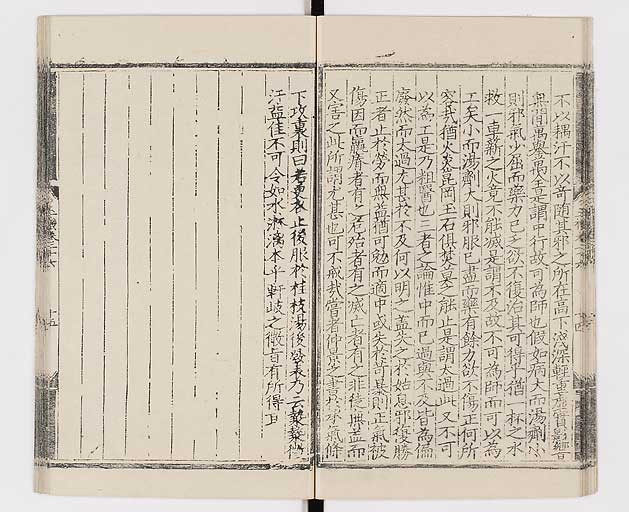 不以耦汗不以奇隨其邪之所在高下淺深輕重虛實影響
無間焉與是謂中行故可為師也假如病大而湯劑小
則邪氣少屈而藥力已乏欲不復治其可得乎猶一杯之水
救一車薪之火竟不能滅是謂不及故不可為師而可以為
工矣小而湯劑大則邪服已盡而藥有餘力欲不傷正何所
哉猶火炎崑岡玉石俱焚莫之能止是謂太過此又不可
以為工是乃粗醫也三者之論惟中而已過與不及皆為偏
廢然而太過尤甚於不及何以明之蓋失之於姑息邪復勝
正者止於勞而無益猶可勉而適中或失於苛暴則正氣被
傷因而羸瘠者有之危殆者有之滅亡者有之非徒無益而
又害之此所謂尤甚也可不戒哉嘗考仲景之書其承氣條
下攻裏則曰若更衣止後服於桂枝湯後發表乃云漐漐微
汗益佳不可令如水淋漓本乎軒岐之微旨有所得曰
十五